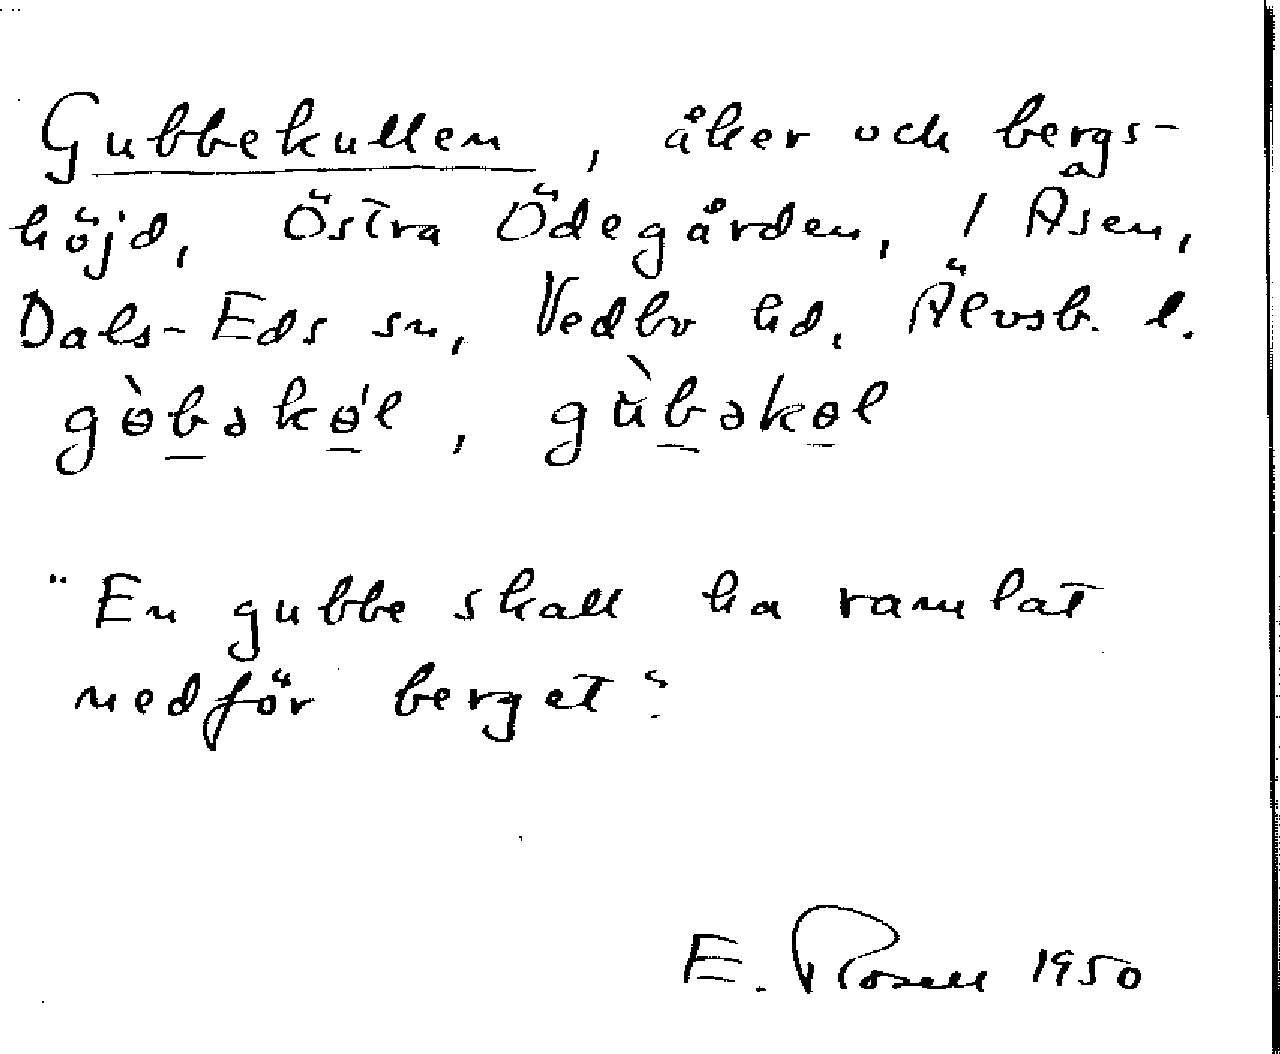 Gubbekullen, åker och bergs-
höjd, Östra Ödegården, / Åsen,
Dals-Eds sn, Vedbo hd, Älvsb. l.
gɵ̀bəkɵ́l, gùbəkɵl
"En gubbe skall ha ramlat
nedför berget".
E. Rosell 1950